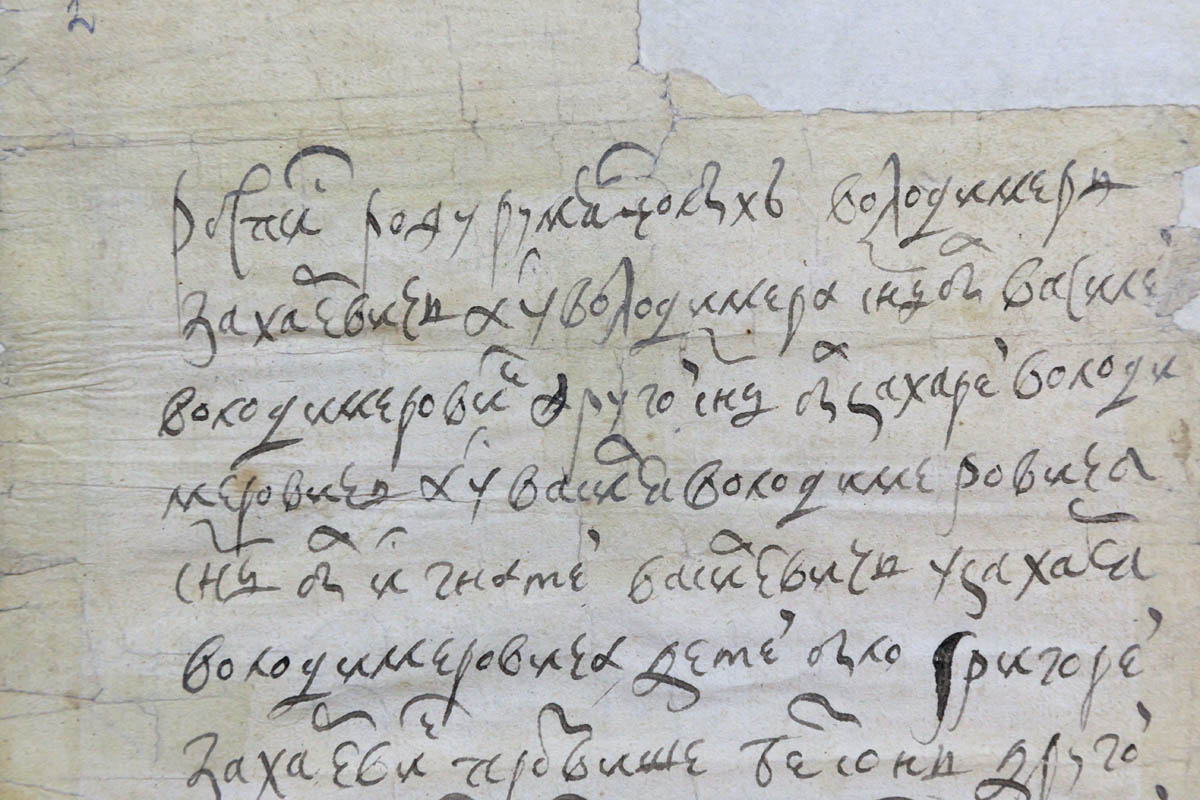 2
роспис роду румянцовыхъ володимеръ
захаревичъ а у володимера снъ был василе
володимерович другой снъ былъ захаре володи
меровичъ а у василя володимеровича
снъ был игнате василевичъ у захаря
володимеровича дете было григоре
захаревич прозвище бесонъ друго